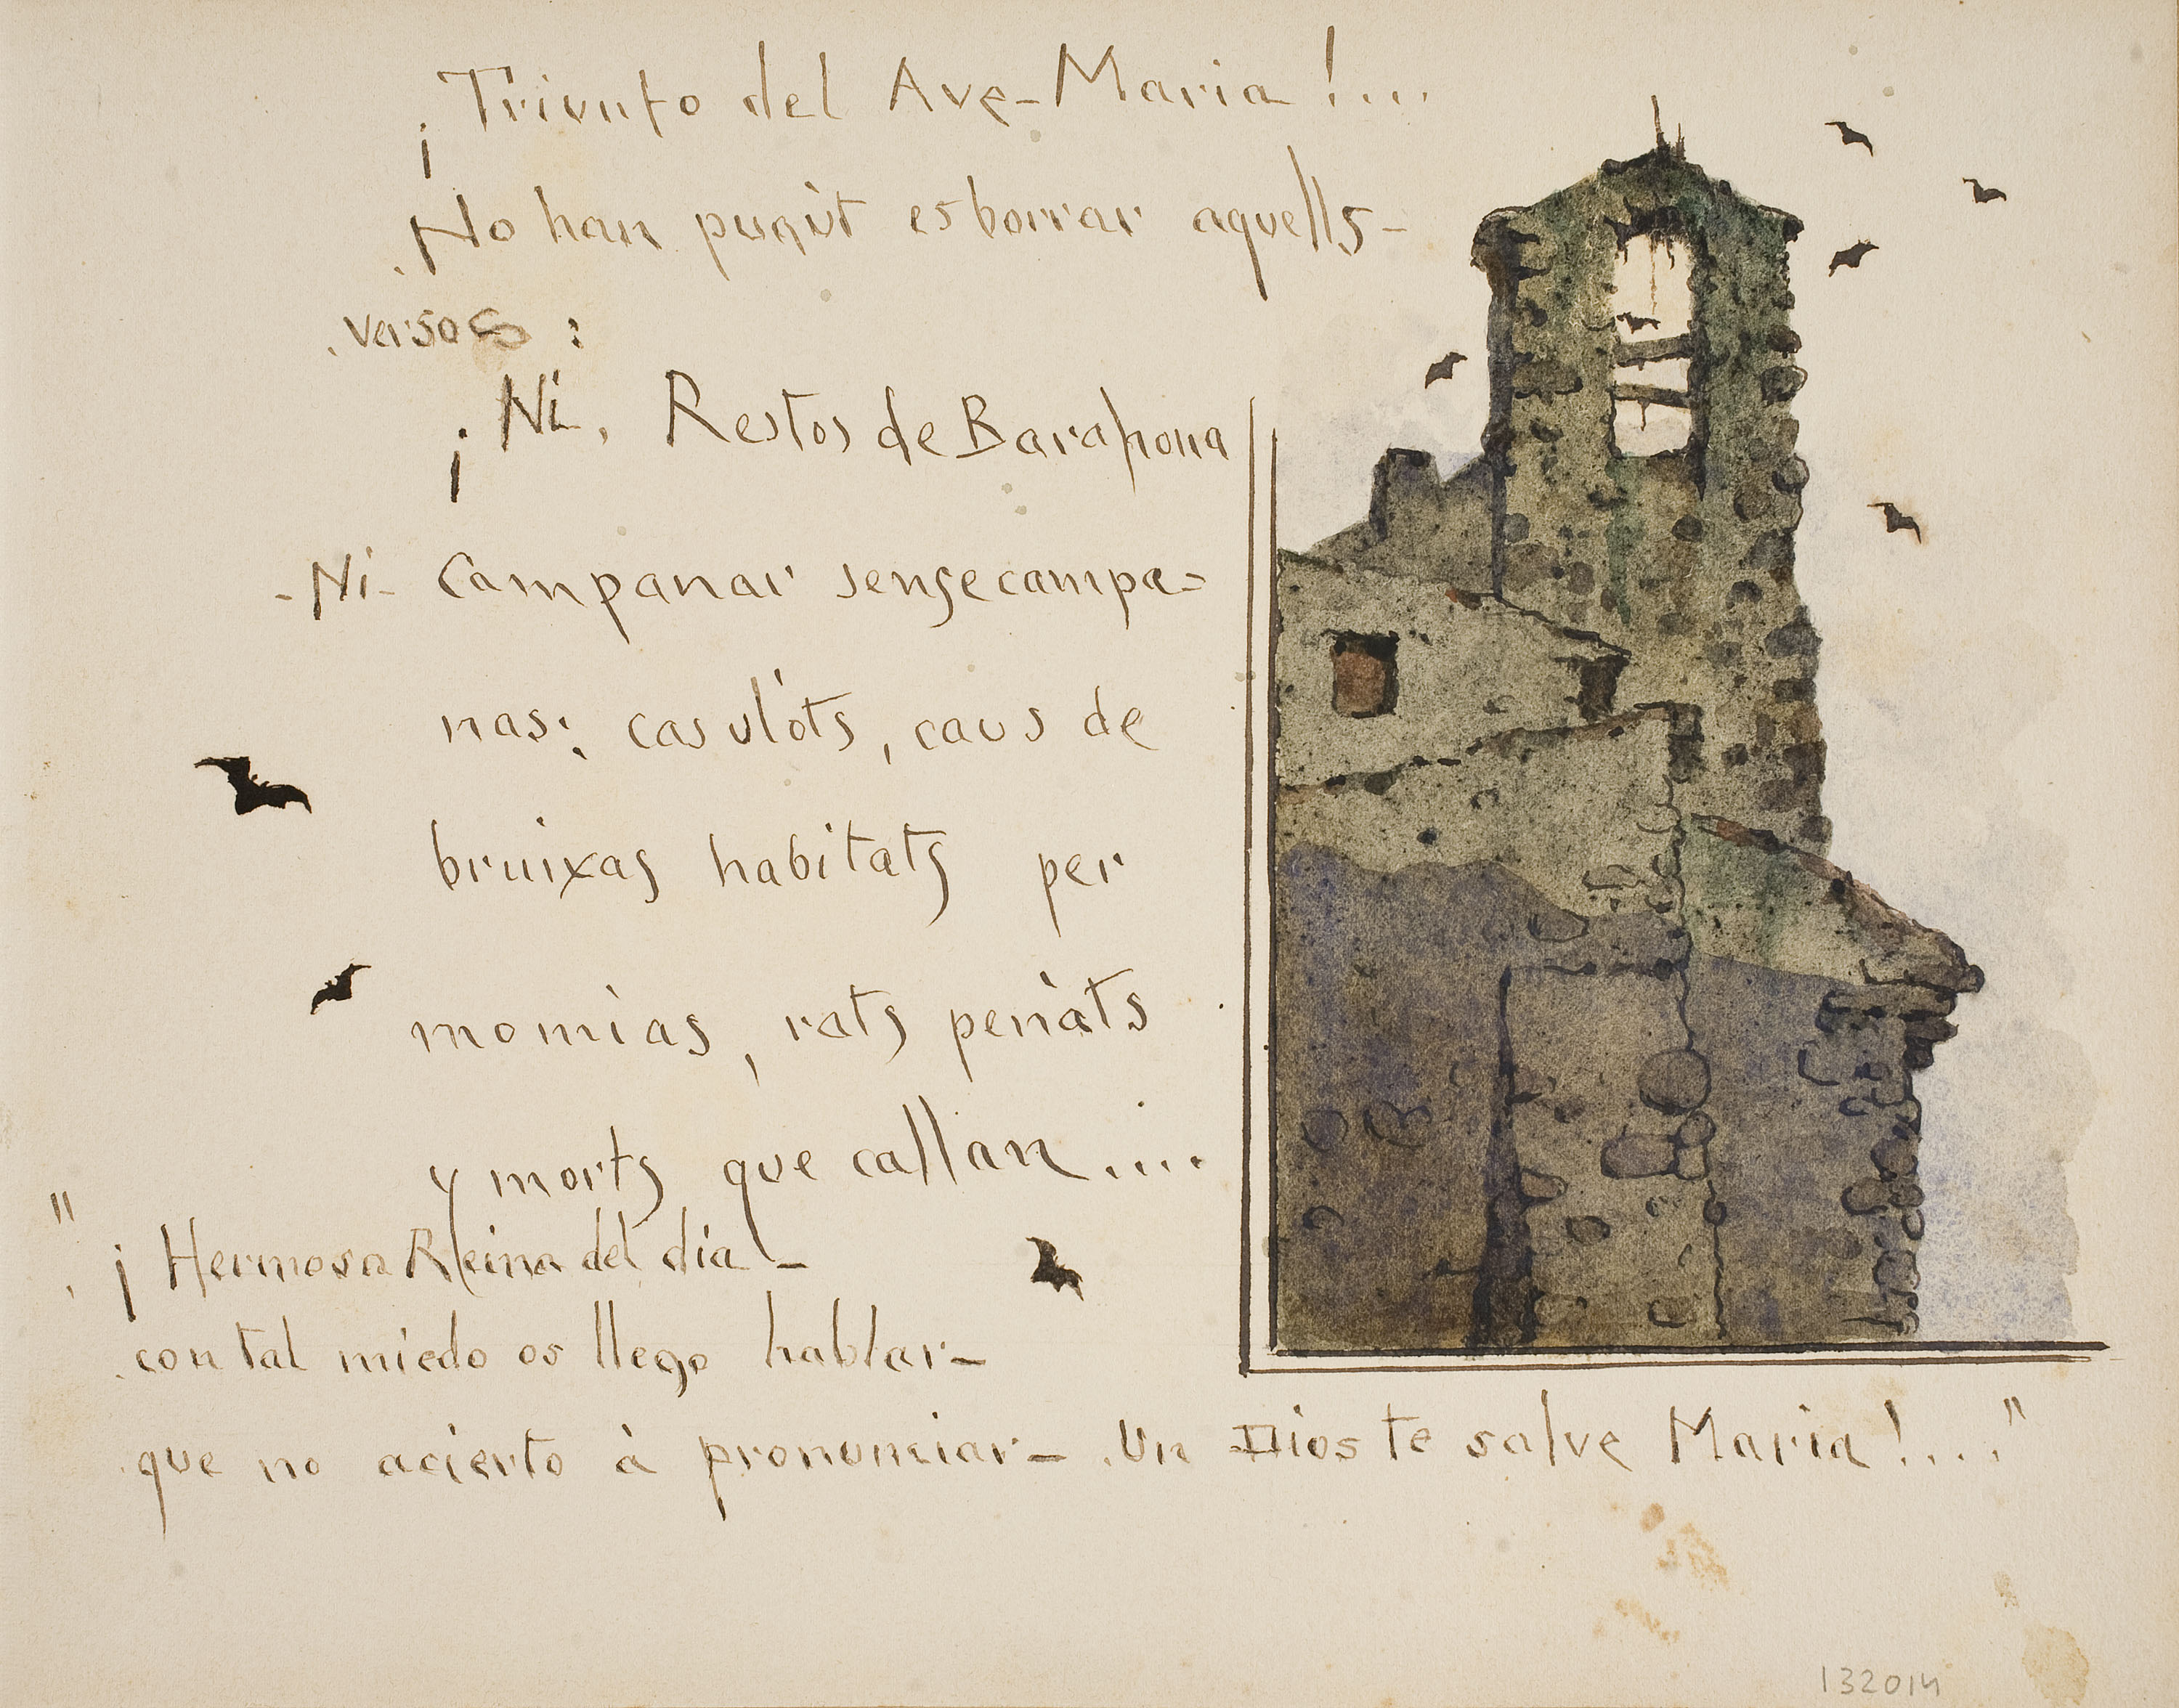 ¡Triunfo del Ave-Maria!...
No han pugùt esborrar aquells-
versos :
¡Ni, Restos de Barahona
-Ni- Campanar sense campa-
nas; casulòts, caus de
bruixas habitats per
momias, rats penàts
y morts que callan....
"¡Hermosa Reina del dia-
con tal miedo os llego hablar-
que no acierto à pronunciar-. Un Dios te salve Maria!...."
132014